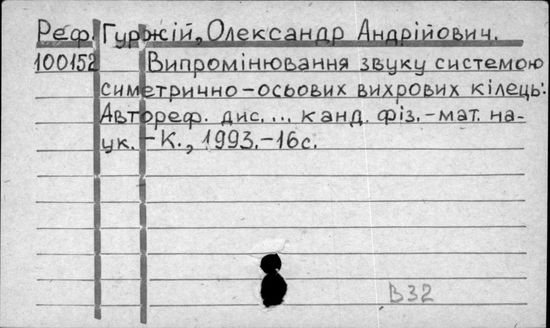 Реф. Гуржій, Олександр Андрійович.
100152 Випромінювання звуку системою
симетрично-осьових вихрових кілець:
Автореф. дис. ... канд. фіз.-мат. на-
ук. - К., 1993.-16с.
В32